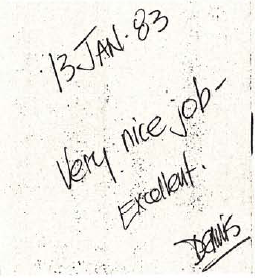 13 JAN. 83
Very nice job-
Excellent.
Dennis